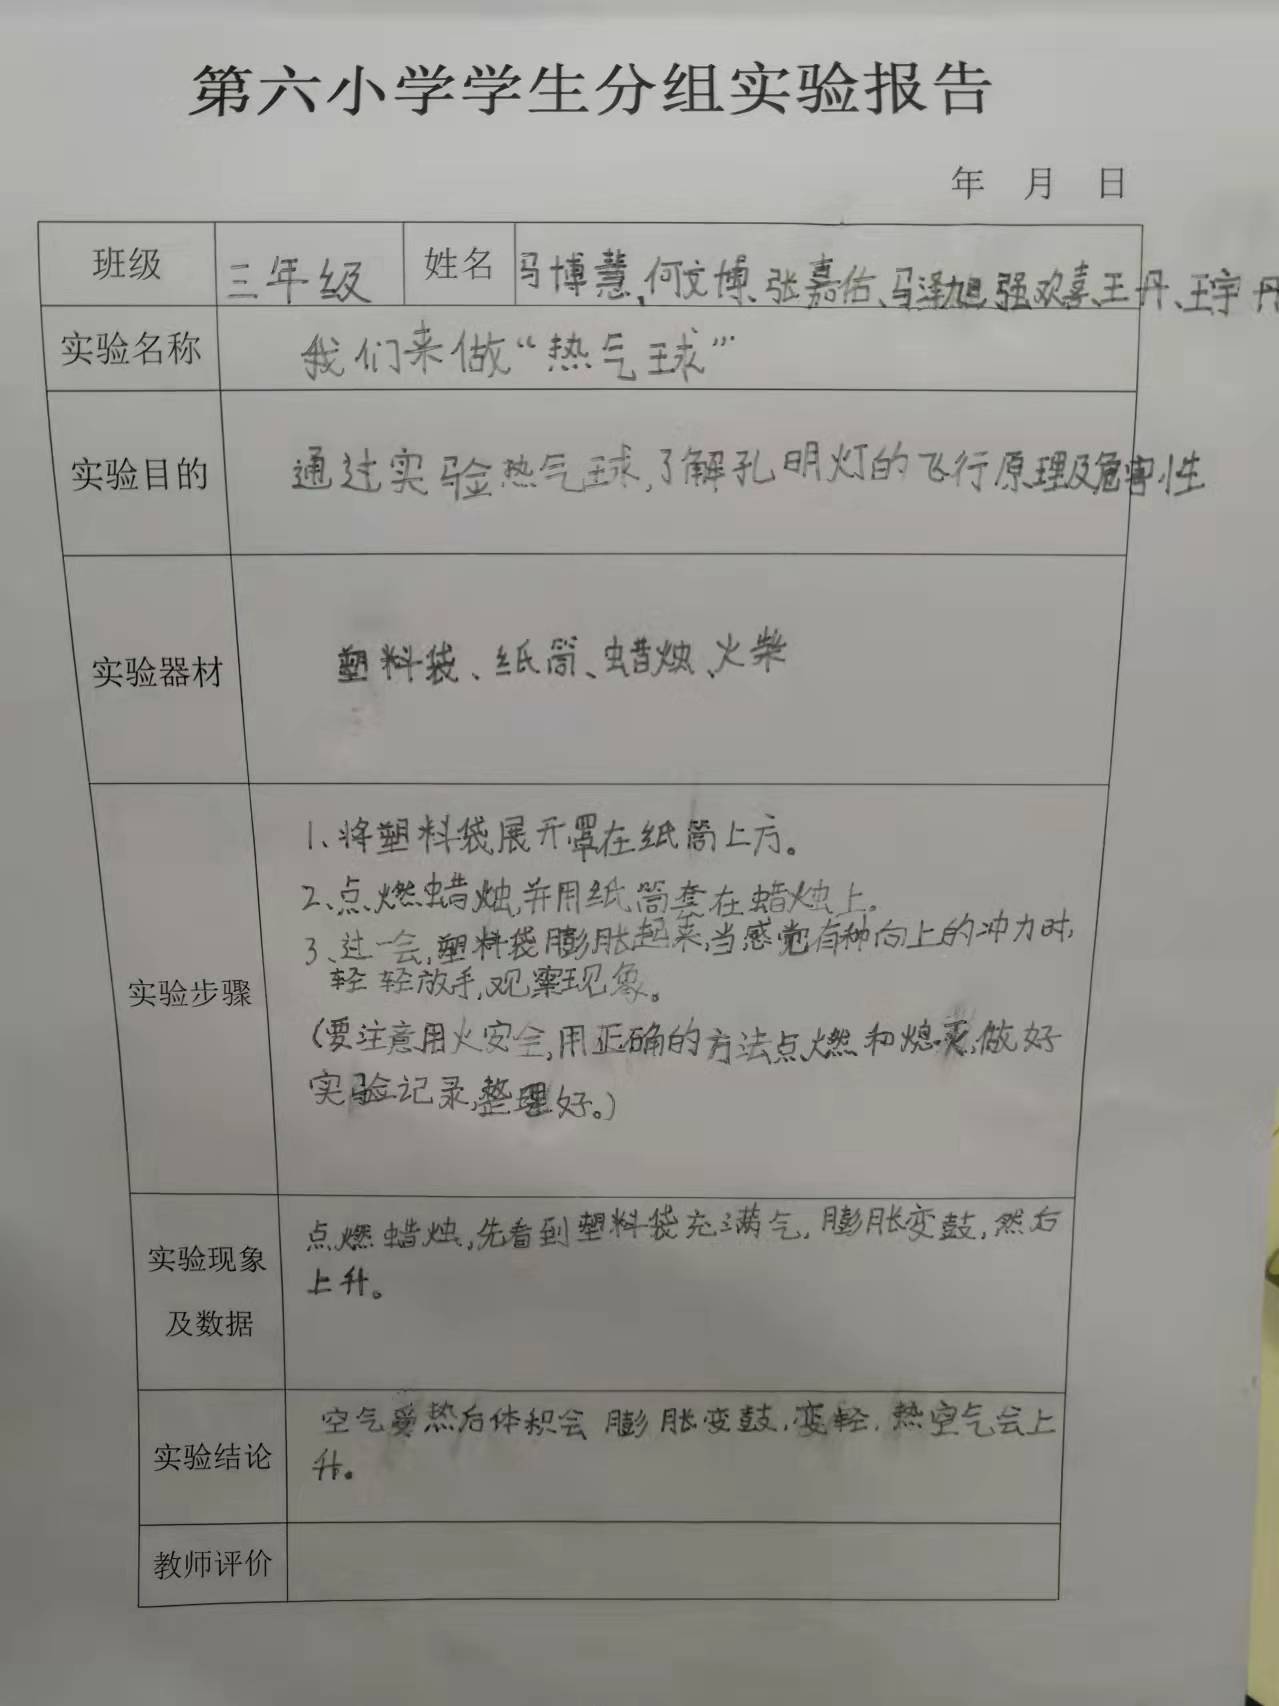 第六小学学生分组实验报告
年 月 日
班级 三年级 姓名 马博慧、何文博、张嘉佑、马泽旭、强欢喜、王丹、王宇丹
实验名称 我们来做“热气球”
实验目的 通过实验热气球,了解孔明灯的飞行原理及危害性
实验器材 塑料袋、纸筒、蜡烛、火柴
实验步骤
1、将塑料袋展开罩在纸筒上方。
2、点燃蜡烛,并用纸筒套在蜡烛上。
3、过一会,塑料袋膨胀起来,当感觉有种向上的冲力时,
轻轻放手,观察现象。
(要注意用火安全,用正确的方法点燃和熄灭,做好
实验记录,整理好。)
实验现象
及数据
点燃蜡烛,先看到塑料袋充满气,膨胀变鼓,然后
上升。
实验结论
空气受热后体积会膨胀变鼓,变轻,热空气会上
升。
教师评价